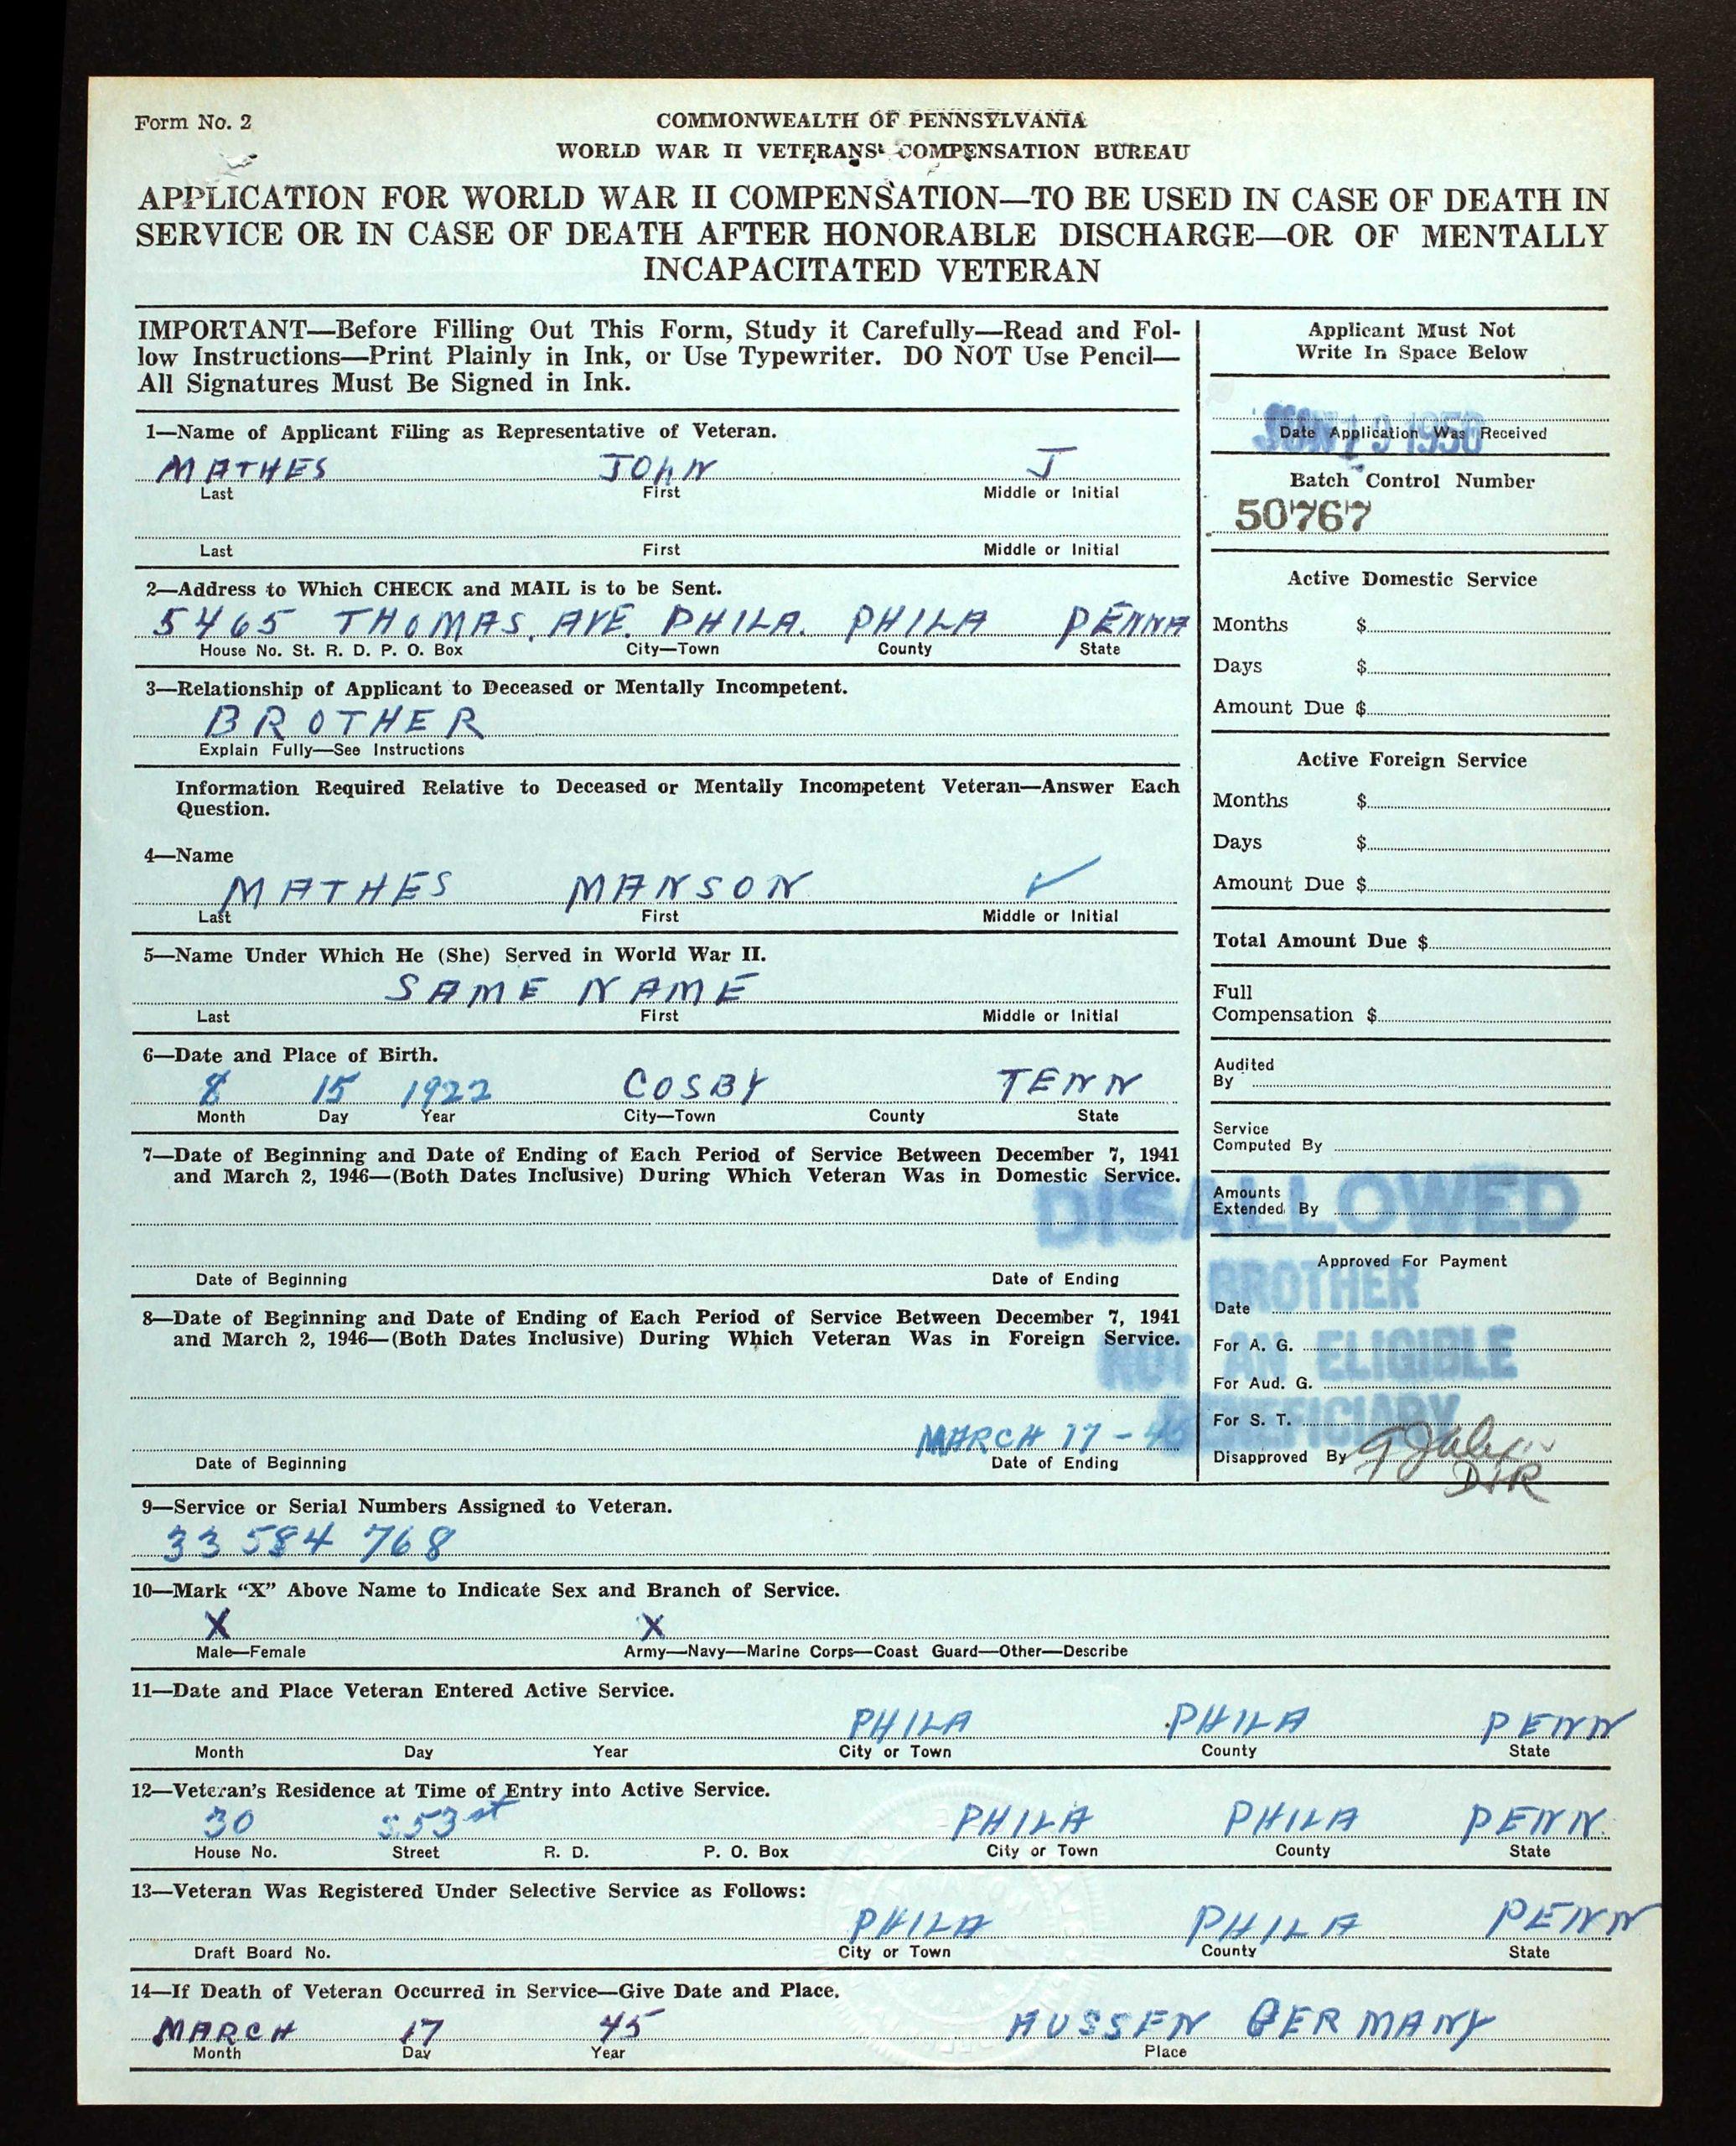 Form No. 2
COMMONWEALTH OF PENNSYLVANIA
WORLD WAR II VETERANS' COMPENSATION BUREAU
APPLICATION FOR WORLD WAR II COMPENSATION—TO BE USED IN CASE OF DEATH IN
SERVICE OR IN CASE OF DEATH AFTER HONORABLE DISCHARGE—OR OF MENTALLY
INCAPACITATED VETERAN
IMPORTANT—Before Filling Out This Form, Study it Carefully—Read and Fol-
low Instructions—Print Plainly in Ink, or Use Typewriter. DO NOT Use Pencil—
All Signatures Must Be Signed in Ink.
1—Name of Applicant Filing as Representative of Veteran.
MATHES JOHN J
Last First Middle or Initial
Last First Middle or Initial
2—Address to Which CHECK and MAIL is to be Sent.
5465 THOMAS. AVE. PHILA. PHILA PENNA
House No. St. R. D. P. O. Box City—Town County State
3—Relationship of Applicant to Deceased or Mentally Incompetent.
BROTHER
Explain Fully—See Instructions
Information Required Relative to Deceased or Mentally Incompetent Veteran—Answer Each
Question.
4—Name
MATHES MANSON ✓
Last First Middle or Initial
5—Name Under Which He (She) Served in World War II.
SAME NAME
Last First Middle or Initial
6—Date and Place of Birth.
8 15 1922 COSBY TENN
Month Day Year City—Town County State
7—Date of Beginning and Date of Ending of Each Period of Service Between December 7, 1941
and March 2, 1946—(Both Dates Inclusive) During Which Veteran Was in Domestic Service.
Date of Beginning Date of Ending
8—Date of Beginning and Date of Ending of Each Period of Service Between December 7, 1941
and March 2, 1946—(Both Dates Inclusive) During Which Veteran Was in Foreign Service.
MARCH 17 - 45
Date of Beginning Date of Ending
Applicant Must Not
Write In Space Below
1950
Date Application Was Received
Batch Control Number
50767
Active Domestic Service
Months $
Days $
Amount Due $
Active Foreign Service
Months $
Days $
Amount Due $
Total Amount Due $
Full
Compensation $
Audited
By
Service
Computed By
DISALLOWED
Amounts
Extended By
Approved For Payment
BROTHER
Date
NOT AN ELIGIBLE
For A. G.
For Aud. G.
BENEFICIARY
For S. T.
Disapproved By
DHR
9—Service or Serial Numbers Assigned to Veteran.
33 584 768
10—Mark “X” Above Name to Indicate Sex and Branch of Service.
X X
Male—Female Army—Navy—Marine Corps—Coast Guard—Other—Describe
11—Date and Place Veteran Entered Active Service.
PHILA PHILA PENN
Month Day Year City or Town County State
12—Veteran's Residence at Time of Entry into Active Service.
30 S 53 st PHILA PHILA PENN.
House No. Street R. D. P. O. Box City or Town County State
13—Veteran Was Registered Under Selective Service as Follows:
PHILA PHILA PENN
Draft Board No. City or Town County State
14—If Death of Veteran Occurred in Service—Give Date and Place.
MARCH 17 45 HUSSEN GERMANY
Month Day Year Place